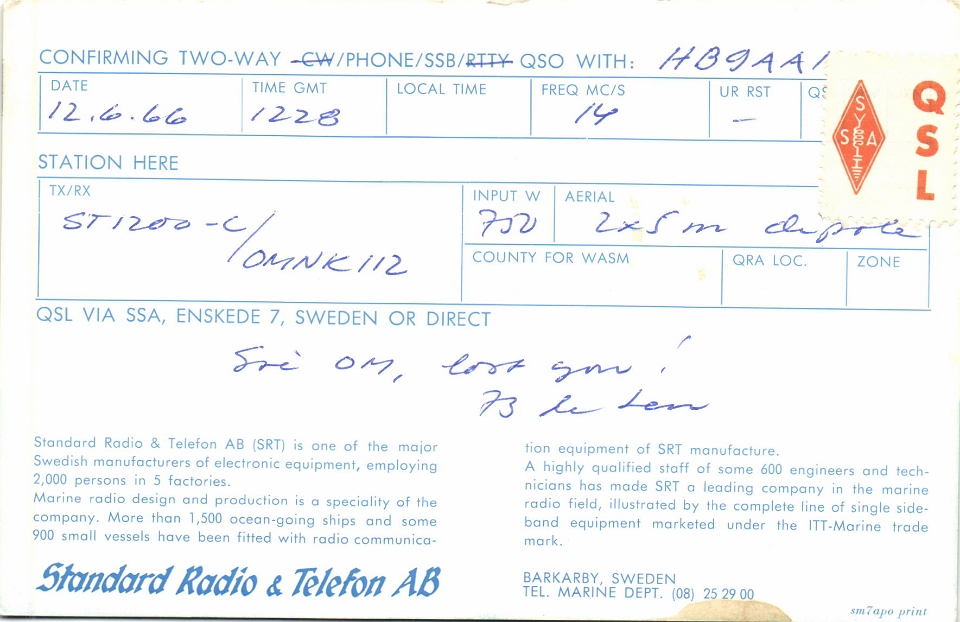 CONFIRMING TWO-WAY CW/PHONE/SSB/RTTY QSO WITH: HB9AA
DATE TIME GMT LOCAL TIME FREQ MC/S UR RST QS
12.6.66 1228 14 –
QSL
SSA
STATION HERE
TX/RX INPUT W AERIAL
ST1200-C/ 750 2x5 m dipole
OMNK112
COUNTY FOR WASM QRA LOC. ZONE
QSL VIA SSA, ENSKEDE 7, SWEDEN OR DIRECT
Sri OM, lost you!
73 de Len
Standard Radio & Telefon AB (SRT) is one of the major
Swedish manufacturers of electronic equipment, employing
2,000 persons in 5 factories.
Marine radio design and production is a speciality of the
company. More than 1,500 ocean-going ships and some
900 small vessels have been fitted with radio communica-
tion equipment of SRT manufacture.
A highly qualified staff of some 600 engineers and tech-
nicians has made SRT a leading company in the marine
radio field, illustrated by the complete line of single side-
band equipment marketed under the ITT-Marine trade
mark.
Standard Radio & Telefon AB
BARKARBY, SWEDEN
TEL. MARINE DEPT. (08) 25 29 00
sm7apo print